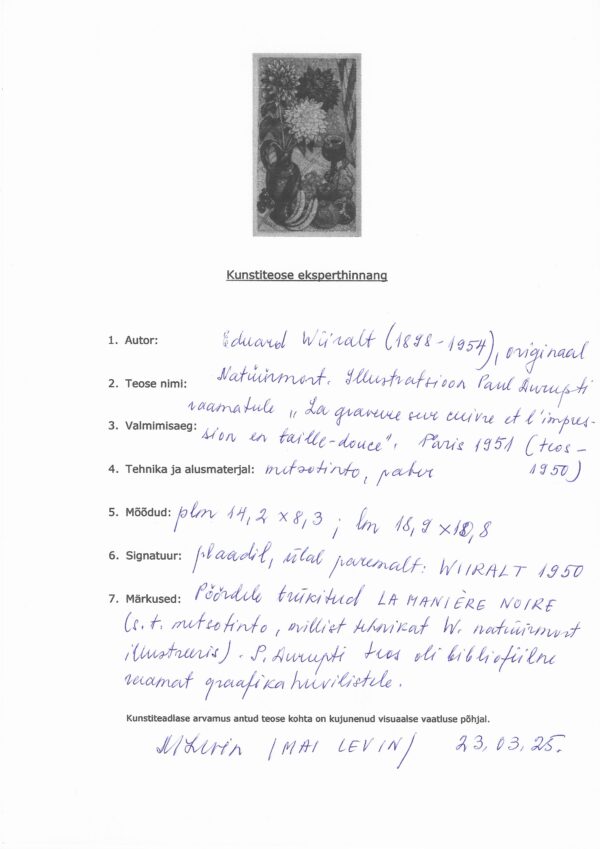 Kunstiteose eksperthinnang
1. Autor: Eduard Wiiralt (1898-1954), originaal
2. Teose nimi: Natüürmort. Illustratsioon Paul Aurupti
raamatule „La gravure sur cuivre et l'impres-
3. Valmimisaeg: sion en taille-douce". Paris 1951 (teos-
4. Tehnika ja alusmaterjal: metsotinto, paber 1950)
5. Mõõdud: plm 14,2 x 8,3 ; lm 18,9 x 10,8
6. Signatuur: plaadil, ülal paremalt: WIIRALT 1950
7. Märkused: Pöördele trükitud LA MANIÈRE NOIRE
(s.t. metsotinto, millist tehnikat W. natüürmort
illustreeris). P. Aurupti teos oli bibliofiilne
raamat graafikahuvilistele.
Kunstiteadlase arvamus antud teose kohta on kujunenud visuaalse vaatluse põhjal.
MLevin /MAI LEVIN/ 23.03.25.